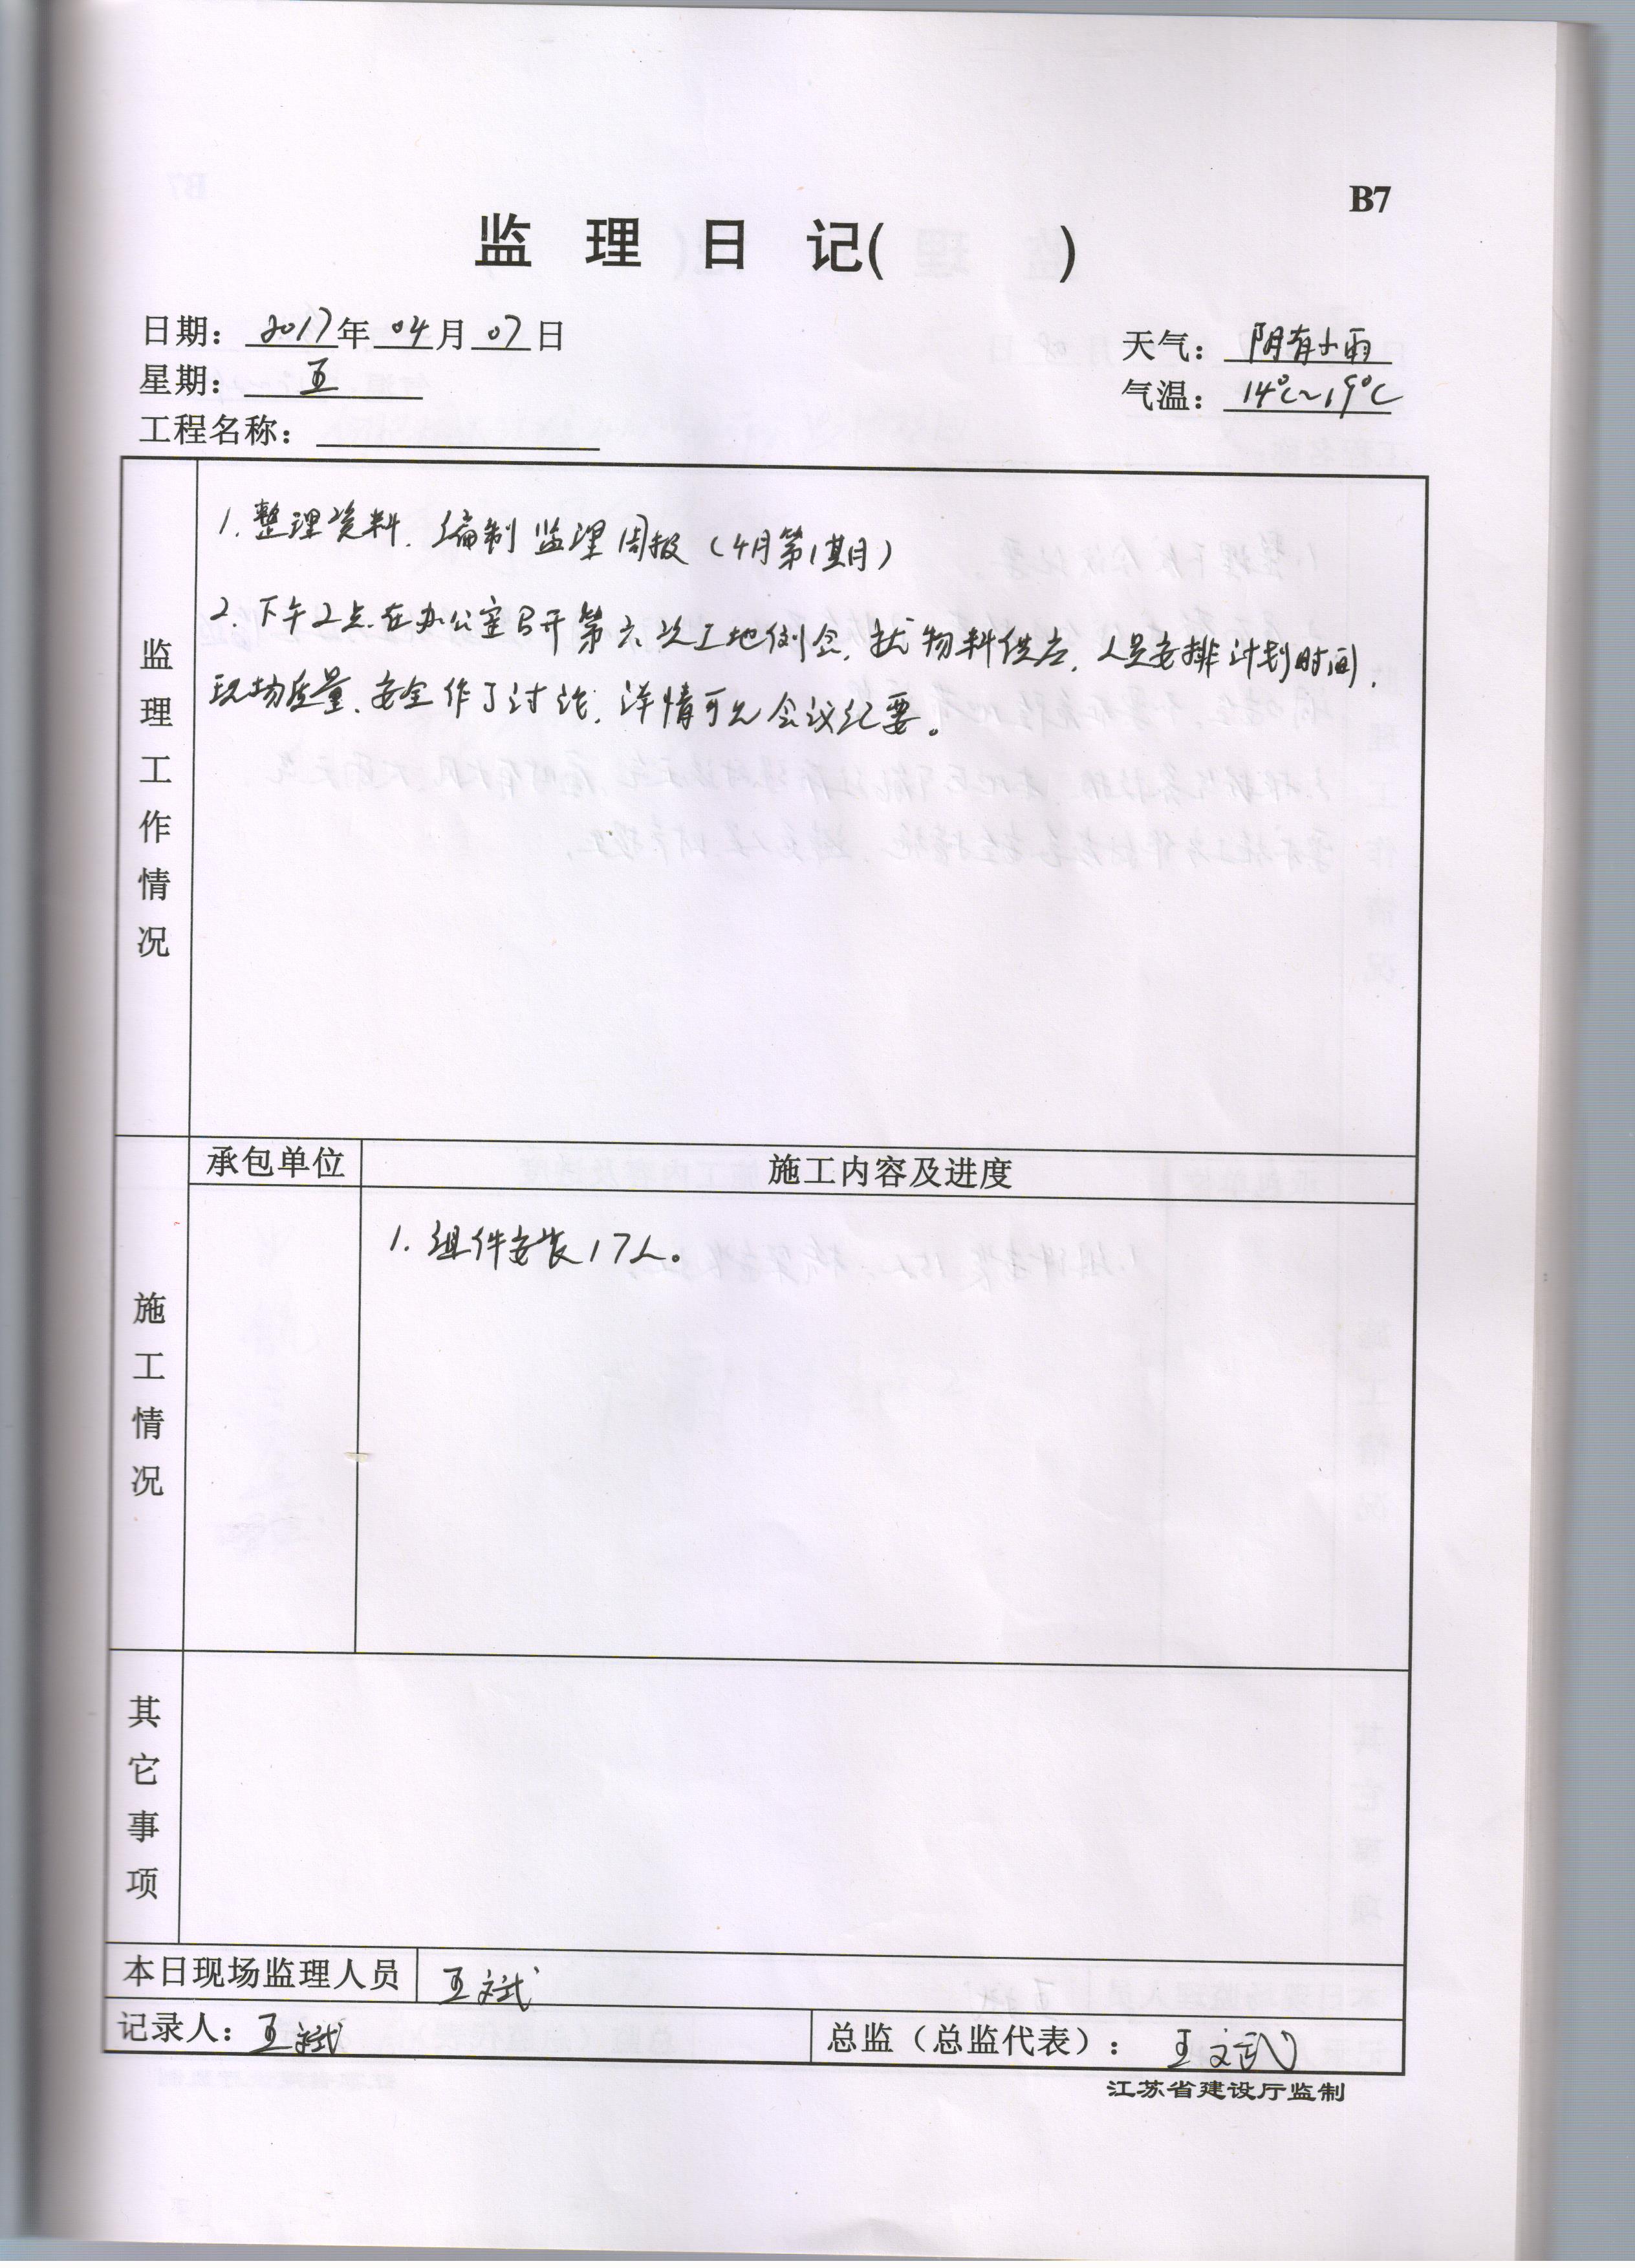 B7
监理日记(　　)
日期：2017年04月07日
天气：阴有小雨
星期：五
气温：14℃~19℃
工程名称：
监理工作情况
1.整理资料、编制监理周报（4月第1期）
2.下午2点在办公室召开第六次工地例会，就物料供应，人员安排计划时间，
现场质量、安全作了讨论，详情可见会议纪要。
承包单位
施工内容及进度
施工情况
1.组件安装17人。
其它事项
本日现场监理人员 王斌
记录人：王斌
总监（总监代表）：王文武
江苏省建设厅监制